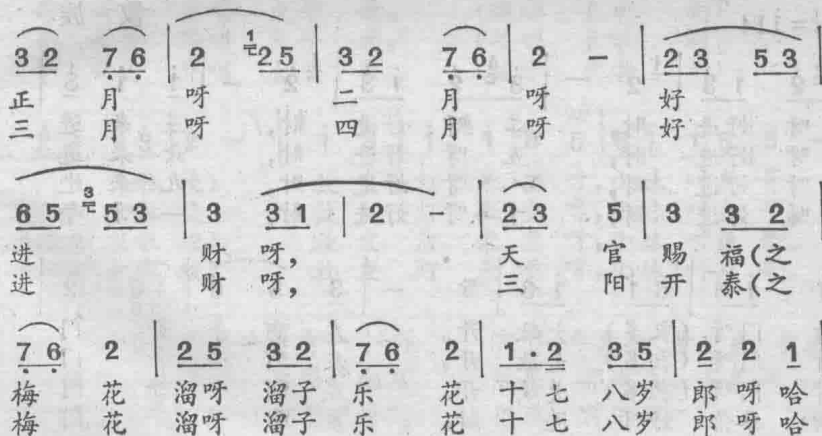 3 2 7 6 | 2 1 2 5 | 3 2 7 6 | 2 - | 2 3 5 3 |
正 月 呀 二 月 呀 好
三 月 呀 四 月 呀 好
6 5 3 5 3 | 3 3 1 | 2 - | 2 3 5 | 3 3 2
进 财 呀, 天 官 赐 福(之
进 财 呀, 三 阳 开 泰(之
7 6 2 | 2 5 3 2 | 7 6 2 | 1 · 2 3 5 | 2 2 1
梅 花 溜呀 溜子 乐 花 十 七 八岁 郎 呀 哈
梅 花 溜呀 溜子 乐 花 十 七 八岁 郎 呀 哈